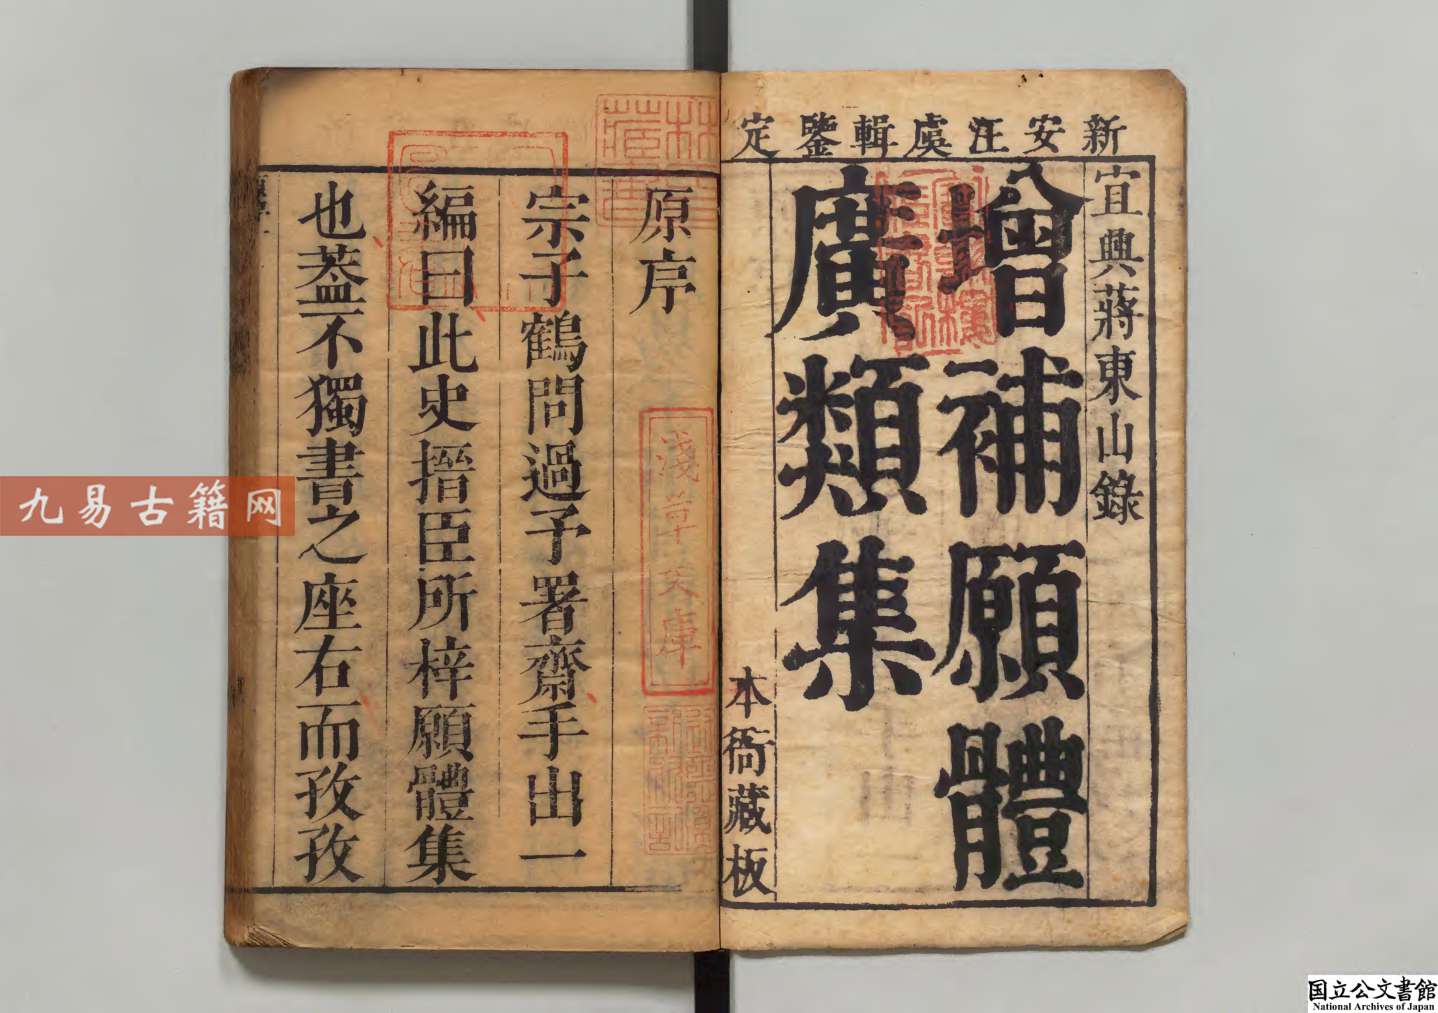 新安汪虞輯鑒定
宜興蔣東山錄
增補願體
廣類集
本衙藏板
原序
宗子鶴問過予署齋手出一
編曰此史搢臣所梓願體集
也蓋不獨書之座右而孜孜
淺草文庫
九易古籍网
国立公文書館
National Archives of Japan